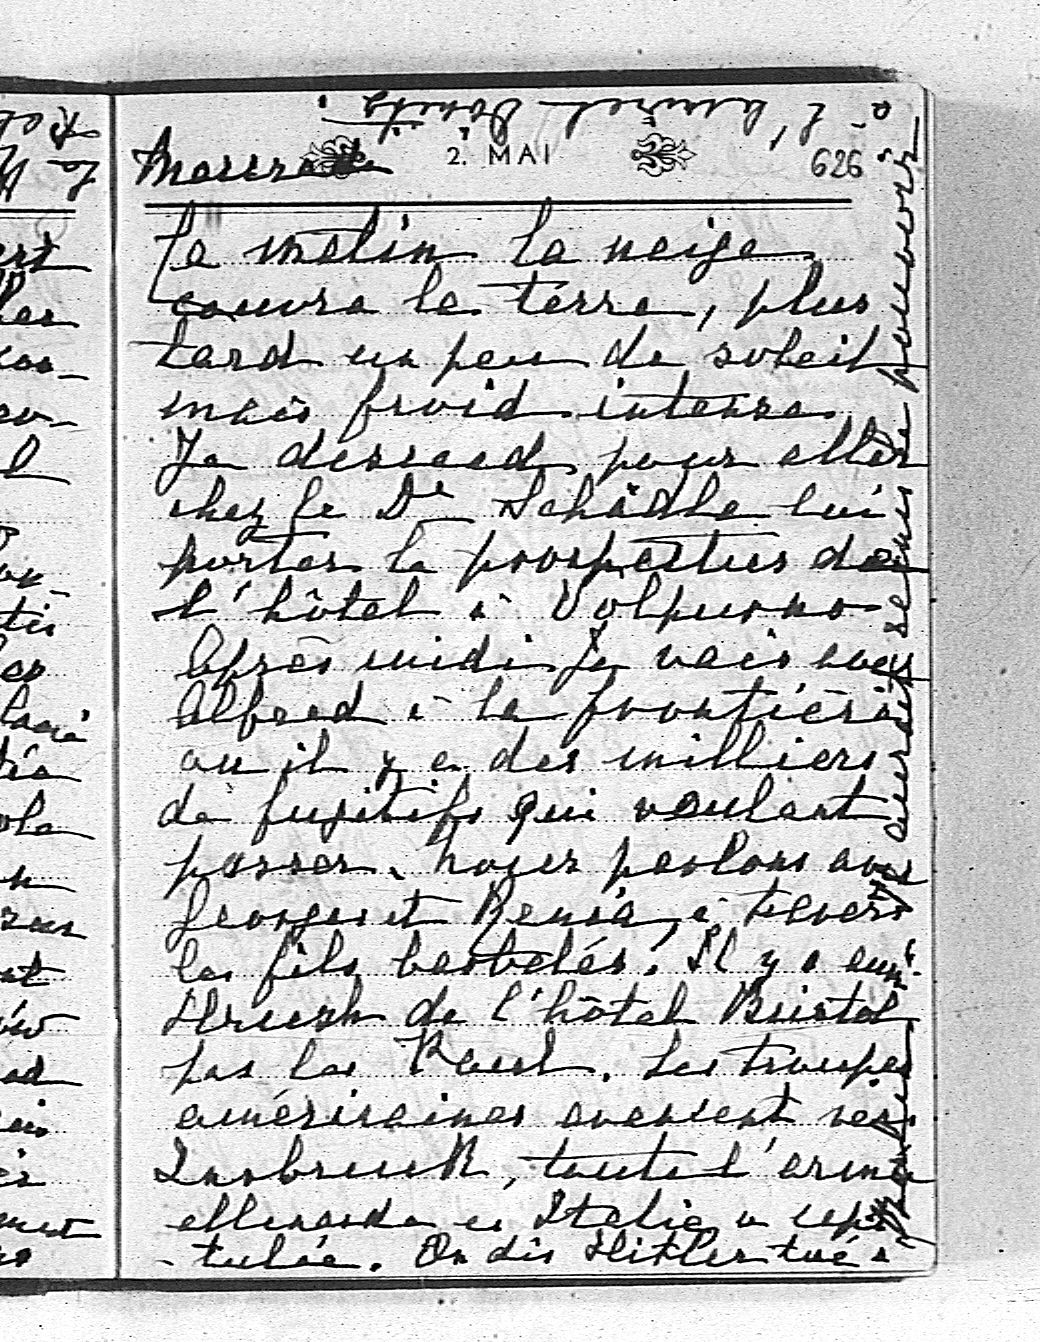 2. MAI
626
Le matin la neige
couvra la terre, plus
tard un peu de soleil
mais froid intense.
Je descend pour aller
chez le Dr Schädle lui
porter le prospectus de
l'hôtel à Volpurno
Après midi je vais avec
Alfred à la frontière
ou il y a des milliers
de fugitifs qui veulent
passer. Nous parlons avec
Georges et Renia, à travers
les fils barbelés. Il y a aussi
de l'hôtel Bristol
pas les Raul. Les troupes
américaines avancent vers
Insbruck, toute l'armée
allemande en Italie a capi-
tulée. On dis Hitler tué
à
l'amiral Dönitz